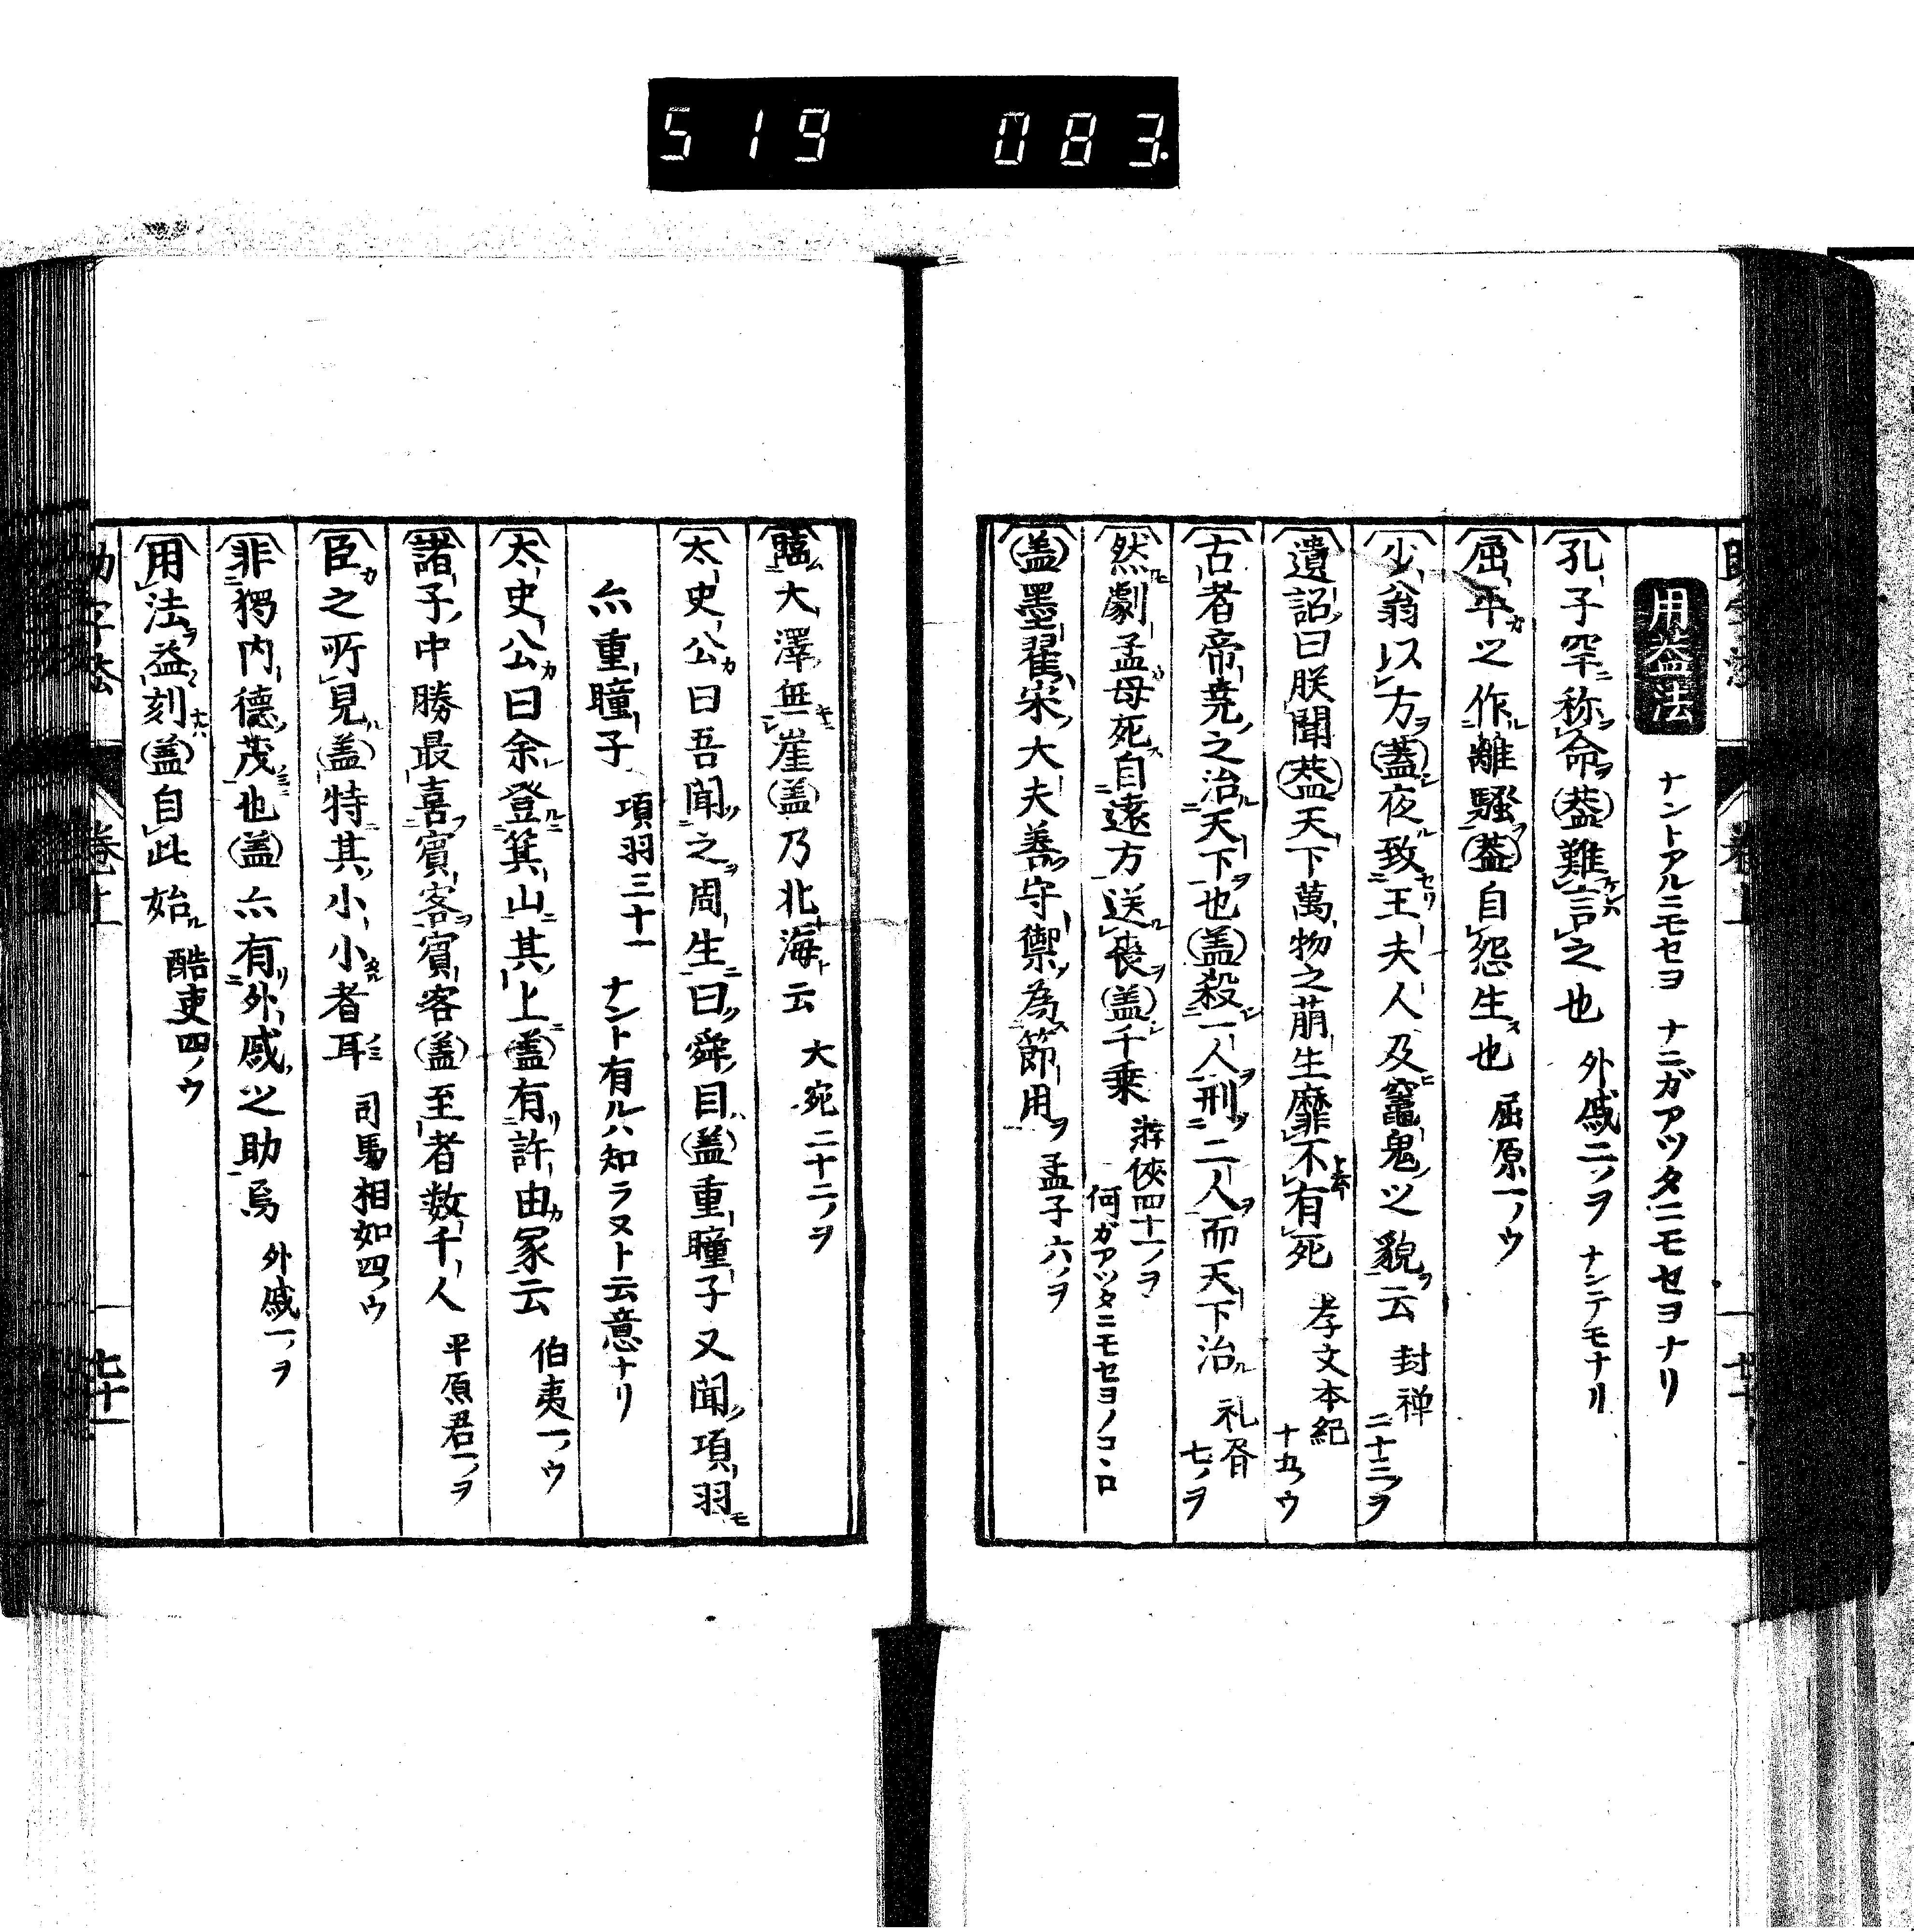 519 083.
用葢法 ナントアルニモセヨ ナニガアツタニモセヨナリ
孔子罕称命葢難言之也 外戚二ノヲ ナンテモナリ
屈平之作離騷葢自怨生也 屈原一ノウ
少翁以方蓋夜致王夫人及竈鬼之貌云 封禅二十三ノヲ
遺詔曰朕聞葢天下萬物之萠生靡不有死 孝文本紀十五ノウ
古者帝堯之治天下也盖殺一人刑二人而天下治 礼
七ノヲ
然劇孟母死自遠方送喪盖千乗 游俠四十一ノヲ
何ガアツタニモセヨノコヽロ
盖墨翟宋大夫善守禦為節用 孟子六ノヲ
臨大澤無崖盖乃北海云 大宛二十二ノヲ
太史公曰吾聞之周生曰舜目盖重瞳子又聞項羽
亦重瞳子 項羽三十一 ナント有ルハ知ラヌト云意ナリ
太史公曰余登箕山其上盖有許由冢云 伯夷一ノウ
諸子中勝最喜賓客賓客盖至者数千人 平原君一ノヲ
臣之所見盖特其小小者耳 司馬相如四ノウ
非獨内德茂也盖亦有外戚之助焉 外戚一ノヲ
用法益刻盖自此始 酷吏四ノウ
七十一